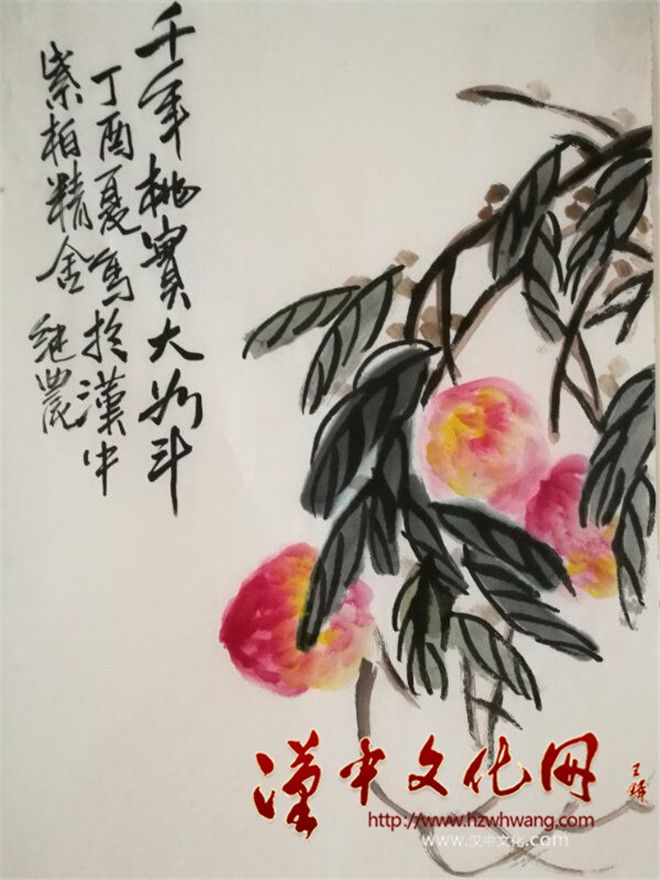 千年桃實大如斗
丁酉夏寫於漢中
紫柏精舍 継農
漢中文化网
王鐸
http://www.hzwhwang.com
www.汉中文化.com